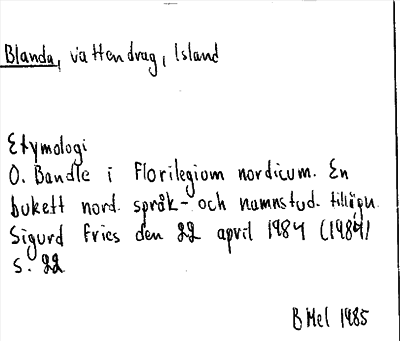 Blanda, vattendrag, Island
Etymologi
O. Bandle i Florilegium nordicum. En
bukett nord. språk- och namnstud. tillägn.
Sigurd Fries den 22 april 1984 (1984)
s. 22
B Mel 1985